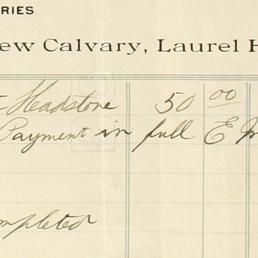 RIES
ew Calvary, Laurel H
Headstone 50 00
Payment in full E M
mpleted